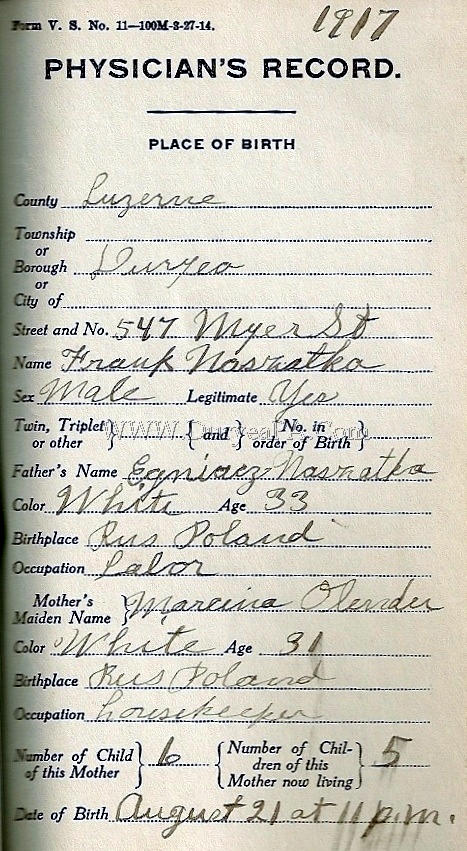 1917
Form V. S. No. 11—100M-3-27-14.
PHYSICIAN'S RECORD.
PLACE OF BIRTH
County Luzerne
Township
or
Borough Duryea
or
City of
Street and No. 547 Myer St
Name Frank Nasratka
Sex Male Legitimate Yes
Twin, Triplet or other } { and } { No. in order of Birth }
WWW.DuryeaPA.Com
Father's Name Egniacz Nasratka
Color White Age 33
Birthplace Rus Poland
Occupation Labor
Mother's Maiden Name } Marcina Olender
Color White Age 31
Birthplace Rus Poland
Occupation housekeeper
Number of Child of this Mother } 6 { Number of Chil-dren of this Mother now living } 5
Date of Birth August 21 at 11 p.m.